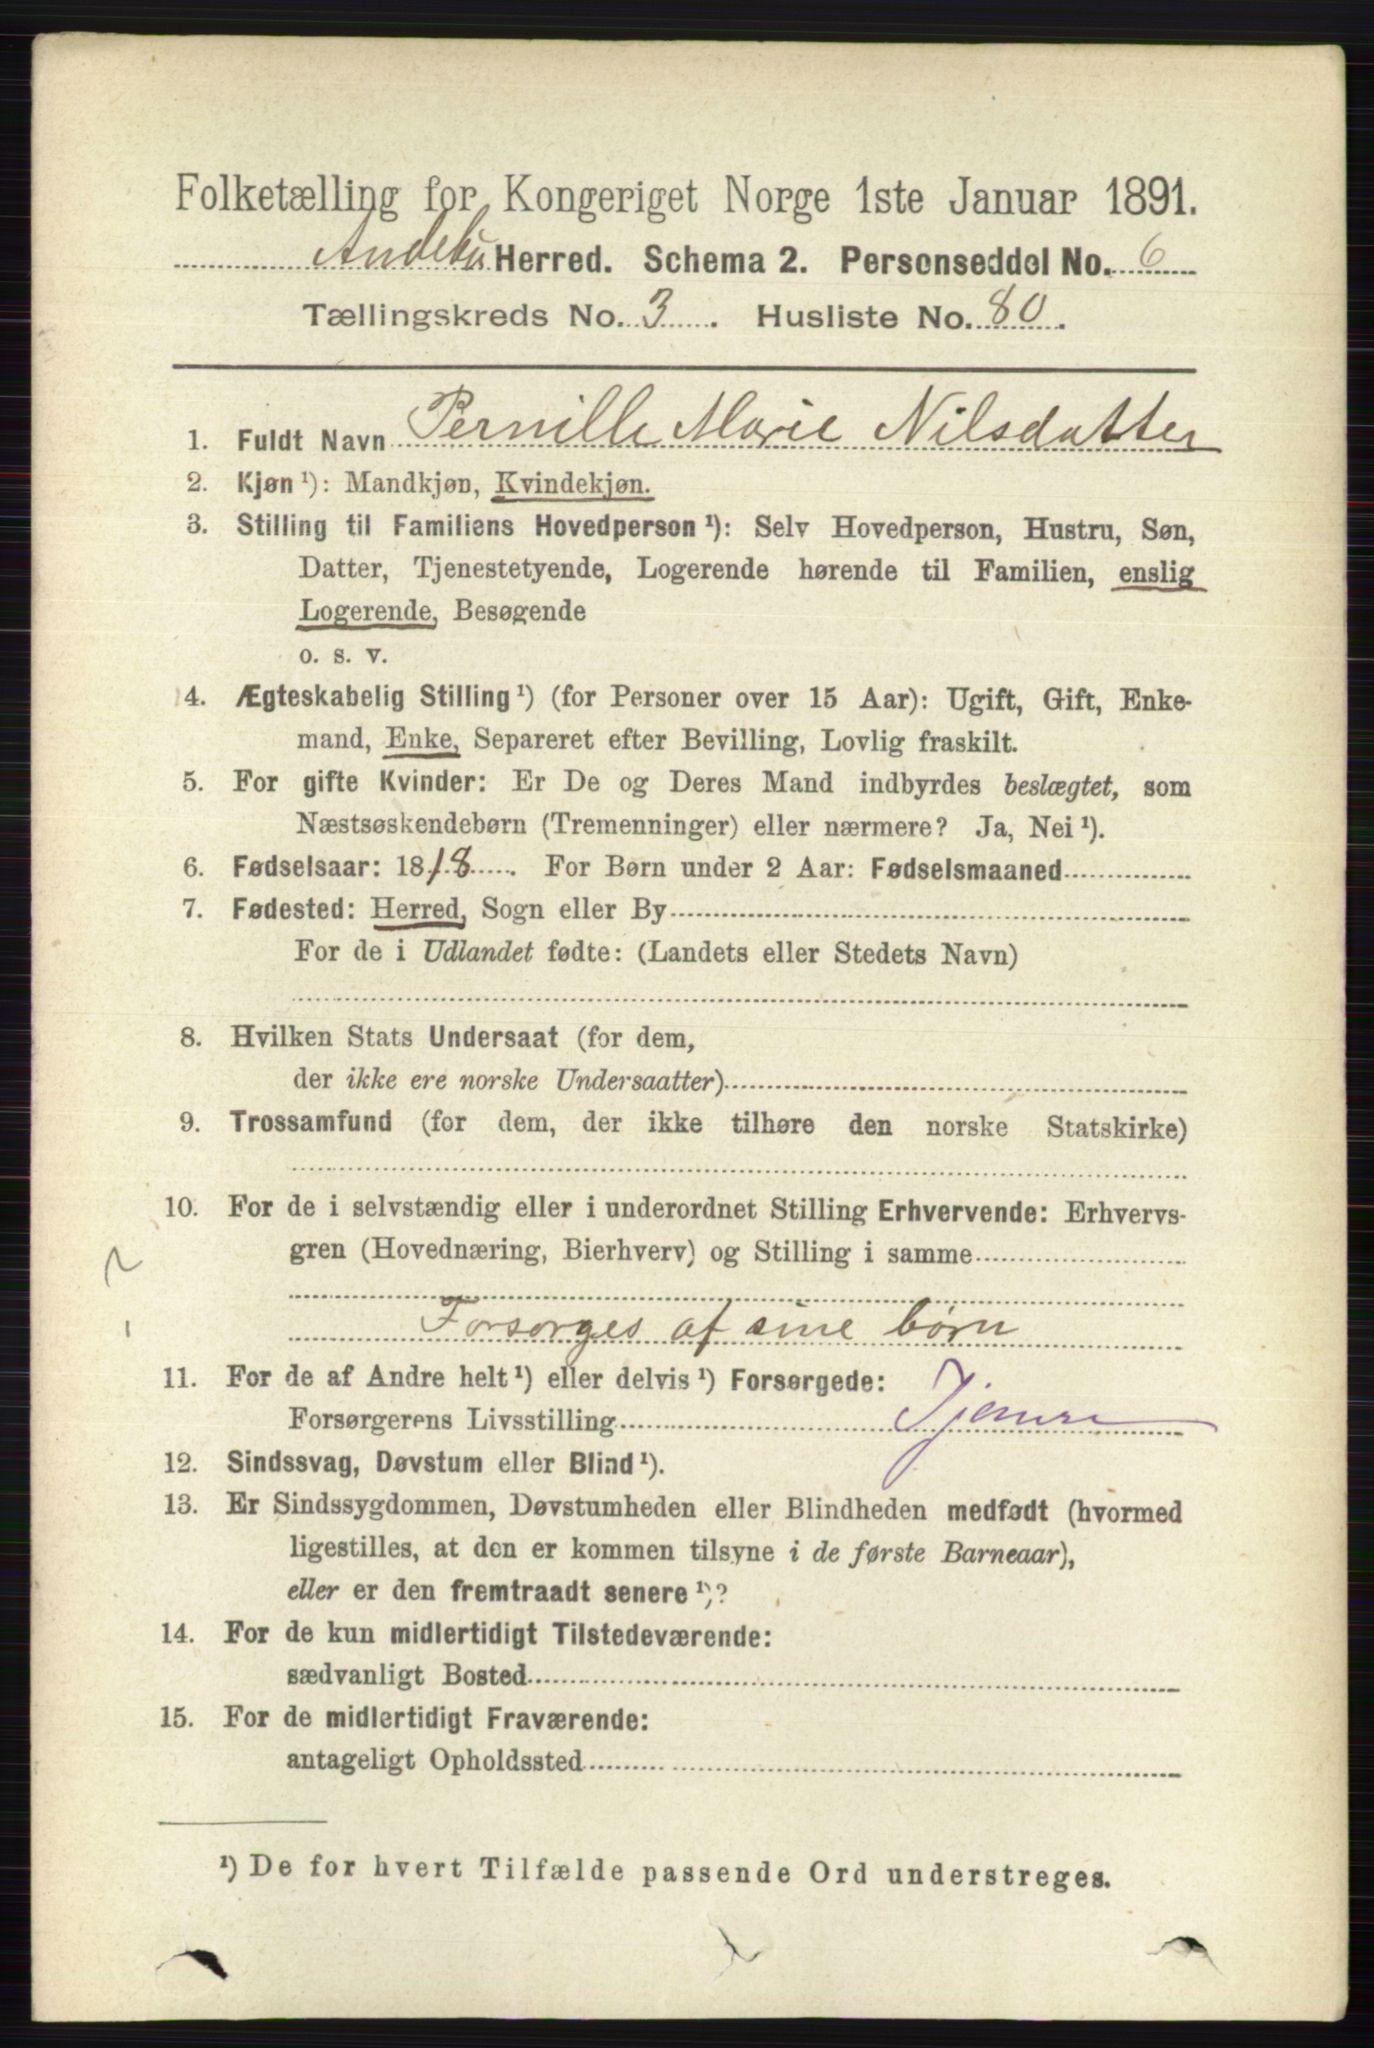 Folketælling for Kongeriget Norge 1ste Januar 1891.
Andebu Herred. Schema 2. Personseddel No. 6
Tællingskreds No. 3. Husliste No. 80.
1. Fuldt Navn Pernille Marie Nilsdatter
2. Kjøn ¹): Mandkjøn, Kvindekjøn.
3. Stilling til Familiens Hovedperson ¹): Selv Hovedperson, Hustru, Søn,
Datter, Tjenestetyende, Logerende hørende til Familien, enslig
Logerende, Besøgende
o. s. v.
4. Ægteskabelig Stilling ¹) (for Personer over 15 Aar): Ugift, Gift, Enke-
mand, Enke, Separeret efter Bevilling, Lovlig fraskilt.
5. For gifte Kvinder: Er De og Deres Mand indbyrdes beslægtet, som
Næstsøskendebørn (Tremenninger) eller nærmere? Ja, Nei ¹).
6. Fødselsaar: 1818. For Børn under 2 Aar: Fødselsmaaned
7. Fødested: Herred, Sogn eller By
For de i Udlandet fødte: (Landets eller Stedets Navn)
8. Hvilken Stats Undersaat (for dem,
der ikke ere norske Undersaatter)
9. Trossamfund (for dem, der ikke tilhøre den norske Statskirke)
10. For de i selvstændig eller i underordnet Stilling Erhvervende: Erhvervs-
gren (Hovednæring, Bierhverv) og Stilling i samme
Forsorges af sine børn
11. For de af Andre helt ¹) eller delvis ¹) Forsørgede:
Forsørgerens Livsstilling
12. Sindssvag, Døvstum eller Blind ¹).
13. Er Sindssygdommen, Døvstumheden eller Blindheden medfødt (hvormed
ligestilles, at den er kommen tilsyne i de første Barneaar),
eller er den fremtraadt senere ¹)?
14. For de kun midlertidigt Tilstedeværende:
sædvanligt Bosted
15. For de midlertidigt Fraværende:
antageligt Opholdssted
¹) De for hvert Tilfælde passende Ord understreges.